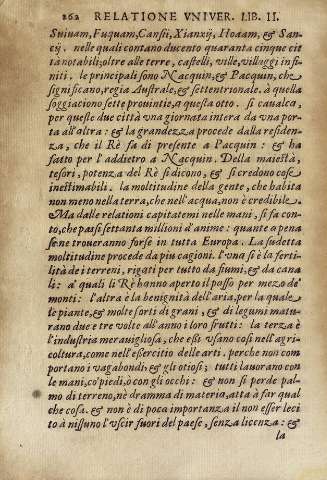 262 RELATIONE VNIVER. LIB. II.
Suinam, Fuquam, Cansii, Xianxij, Hoaam, & San-
cij. nelle quali contano ducento quaranta cinque cit
tà notabili; oltre alle terre, castelli, ville, villaggi infi-
niti. le principali sono Nacquin, & Pacquin, che
significano, regia Australe, & settentrionale. à quella
soggiaciono sette prouintie, a questa otto. si caualca,
per queste due città vna giornata intera da vna por-
ta all'altra: & la grandezza procede dalla residen-
za, che il Rè fa di presente a Pacquin: & ha
fatto per l'addietro a Nacquin. Della maiestà,
tesori, potenza del Rè si dicono, & si credono cose
inestimabili. la moltitudine della gente, che habita
non meno nella terra, che nell'acqua, non è credibile.
Ma dalle relationi capitatemi nelle mani, si fa con-
to, che passi settanta millioni d'anime: quante a pena
se ne troueranno forse in tutta Europa. La sudetta
moltitudine procede da piu cagioni. l'vna si è la ferti-
lità de i terreni, rigati per tutto da fiumi, & da cana
li: a quali li Rè hanno aperto il passo per mezo de'
monti: l'altra è la benignità dell'aria, per la quale
le piante, & molte sorti di grani, & di legumi matu-
rano due e tre volte all'anno i loro frutti: la terza è
l'industria merauigliosa, che essi vsano cosi nell'agri-
coltura, come nell'essercitio delle arti. perche non com
portano i vagabondi, & gli otiosi; tutti lauorano con
le mani, co'piedi, ò con gli occhi: & non si perde pal-
mo di terreno, nè dramma di materia, atta à far qual
che cosa. & non è di poca importanza il non esser leci
to à nissuno l'vscir fuori del paese, senza licenza: &
la